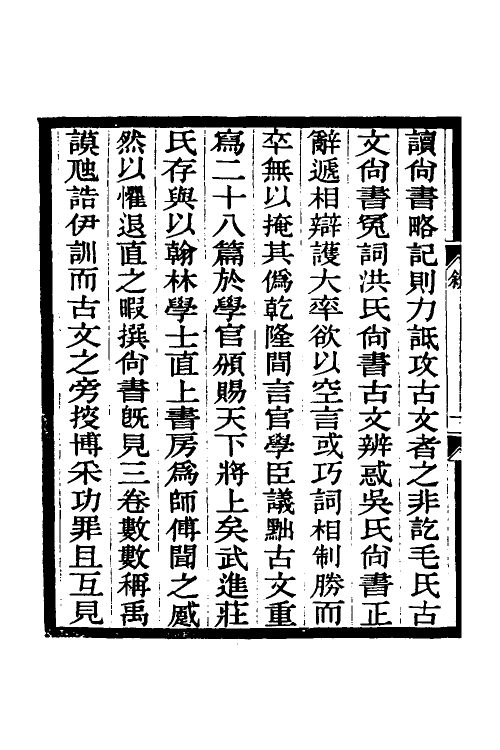 讀尙書略記則力詆攻古文者之非訖毛氏古
文尙書冤詞洪氏尙書古文辨惑吳氏尙書正
辭遞相辯護大率欲以空言或巧詞相制勝而
卒無以掩其僞乾隆間言官學臣議黜古文重
寫二十八篇於學官頒賜天下將上矣武進莊
氏存與以翰林學士直上書房爲師傅聞之慼
然以懼退直之暇撰尙書旣見三卷數數稱禹
謨虺誥伊訓而古文之旁㧞博采功罪且互見